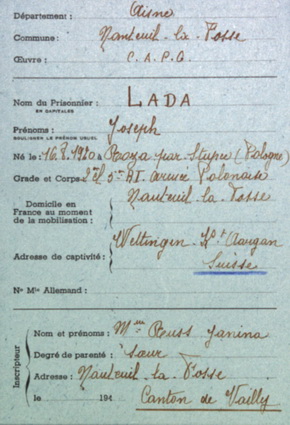 Département : Aisne
Commune : Nanteuil-la-Fosse
Œuvre : C. A. P. O.
Nom du Prisonnier : LADA
EN CAPITALES
Prénoms : Joseph
SOULIGNER LE PRÉNOM USUEL
Né le : 16.8.1920 à Roza par Stupie (Pologne)
Grade et Corps : 2e cl 5me RI. armée Polonaise
Domicile en Nanteuil-la-Fosse
France au moment
de la mobilisation :
Wettingen Kt Aargau
Adresse de captivité : Suisse
No Mle Allemand :
Inscripteur
Nom et prénoms : Mme Buss Janina
Degré de parenté : sœur
Adresse : Nanteuil-la-Fosse
le 194 Canton de Vailly